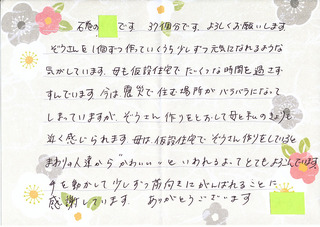 石巻の です。37個分です。よろしくお願いします。
ぞうさんを1個ずつ作っていくうち少しずつ元気になれるような
気がしています。母も仮設住宅でたいくつな時間を過さず
すんでいます。今は震災で住む場所がバラバラになって
しまっていますが、ぞうさん作りをとおして母と私のきょりも
近く感じられます。母は仮設住宅でぞうさん作りをしていると
まわりの人達から"かわいい〜"といわれるよってとてもよろこんでいます。
手を動かして少しずつ前向きにがんばれることに
感謝しています。ありがとうございます